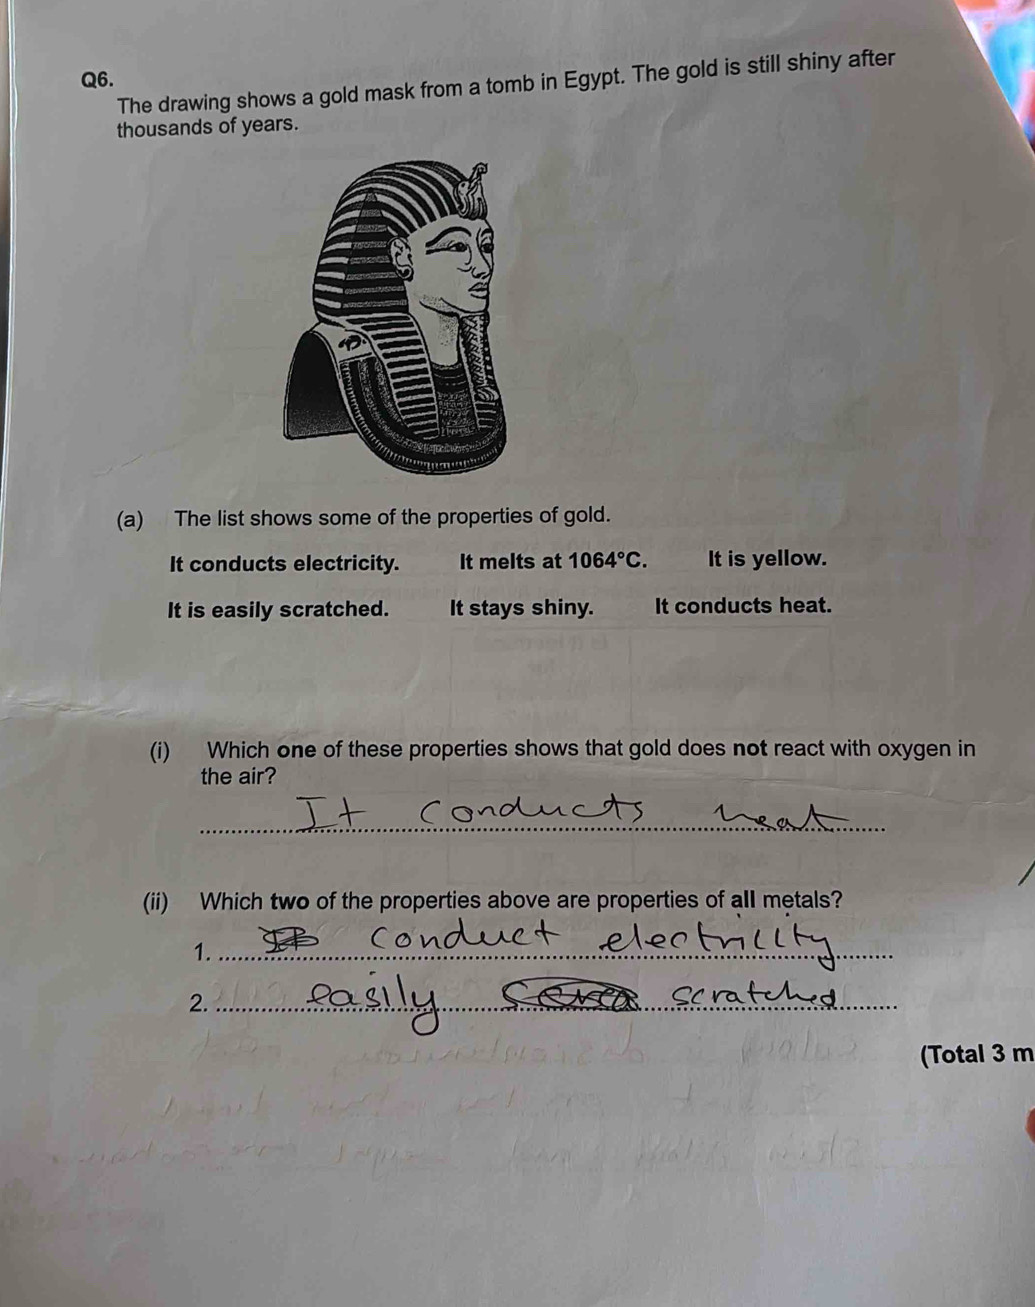 Q6.
The drawing shows a gold mask from a tomb in Egypt. The gold is still shiny after
thousands of years.
(a) The list shows some of the properties of gold.
It conducts electricity. It melts at 1064°C. It is yellow.
It is easily scratched. It stays shiny. It conducts heat.
(i) Which one of these properties shows that gold does not react with oxygen in
the air?
It conducts heat
(ii) Which two of the properties above are properties of all metals?
1. conduct electricity
2. easily scratched
(Total 3 m